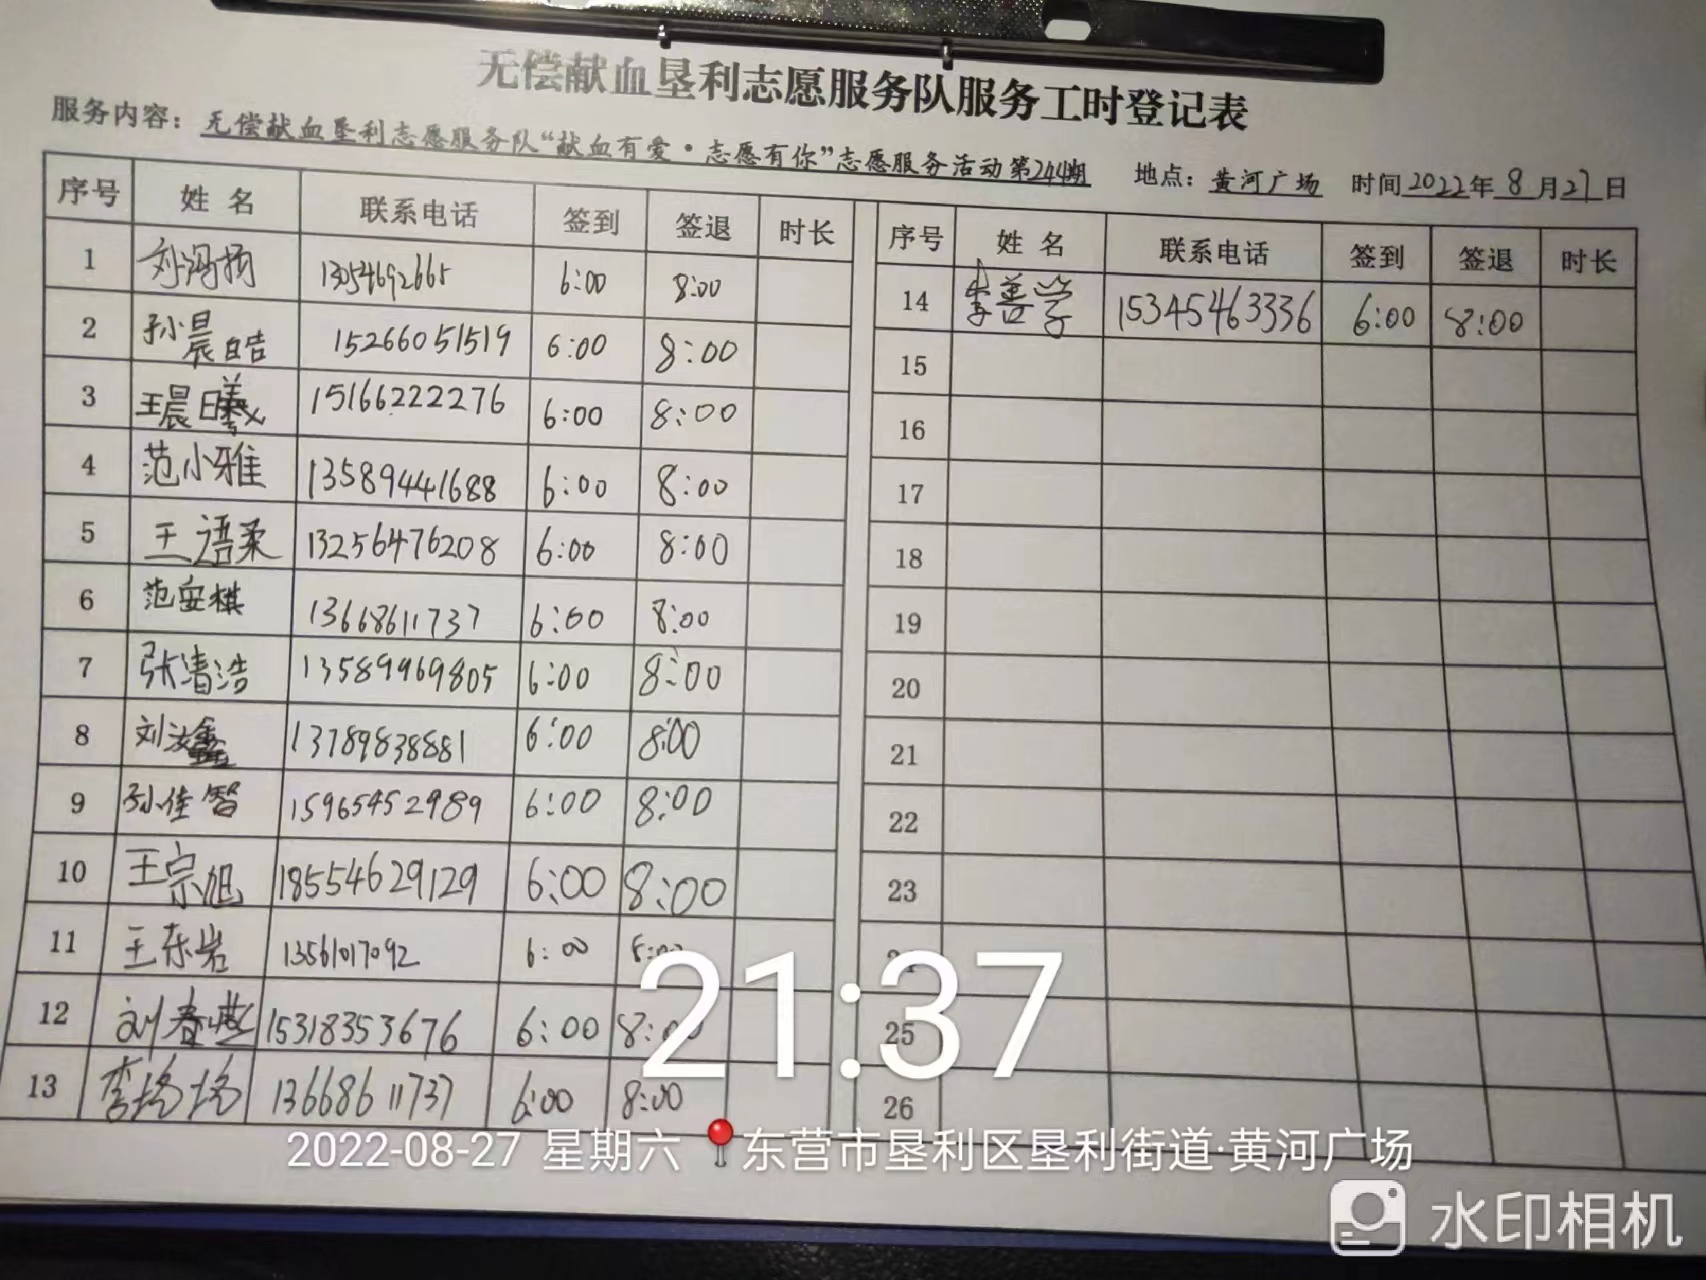 无偿献血垦利志愿服务队服务工时登记表
服务内容：无偿献血垦利志愿服务队“献血有爱·志愿有你”志愿服务活动第244期 地点：黄河广场 时间2022年8月27日
序号 姓名 联系电话 签到 签退 时长 序号 姓名 联系电话 签到 签退 时长
1 刘鸿扬 13054692665 6:00 8:00 14 李善学 15345463336 6:00 8:00
2 孙晨皓 15266051519 6:00 8:00 15
3 王晨曦 15166222276 6:00 8:00 16
4 范小雅 13589441688 6:00 8:00 17
5 王语柔 13256476208 6:00 8:00 18
6 范安棋 13668611737 6:00 8:00 19
7 张清浩 13589969805 6:00 8:00 20
8 刘汝鑫 13789838881 6:00 8:00 21
9 孙佳智 15965452989 6:00 8:00 22
10 王宗旭 18554629129 6:00 8:00 23
11 王东岩 13561017092 6:00 8:00
12 刘春燕 15318353676 6:00 8:00 25
13 李 13668611737 6:00 8:00 26
21:37
2022-08-27 星期六 东营市垦利区垦利街道·黄河广场
水印相机